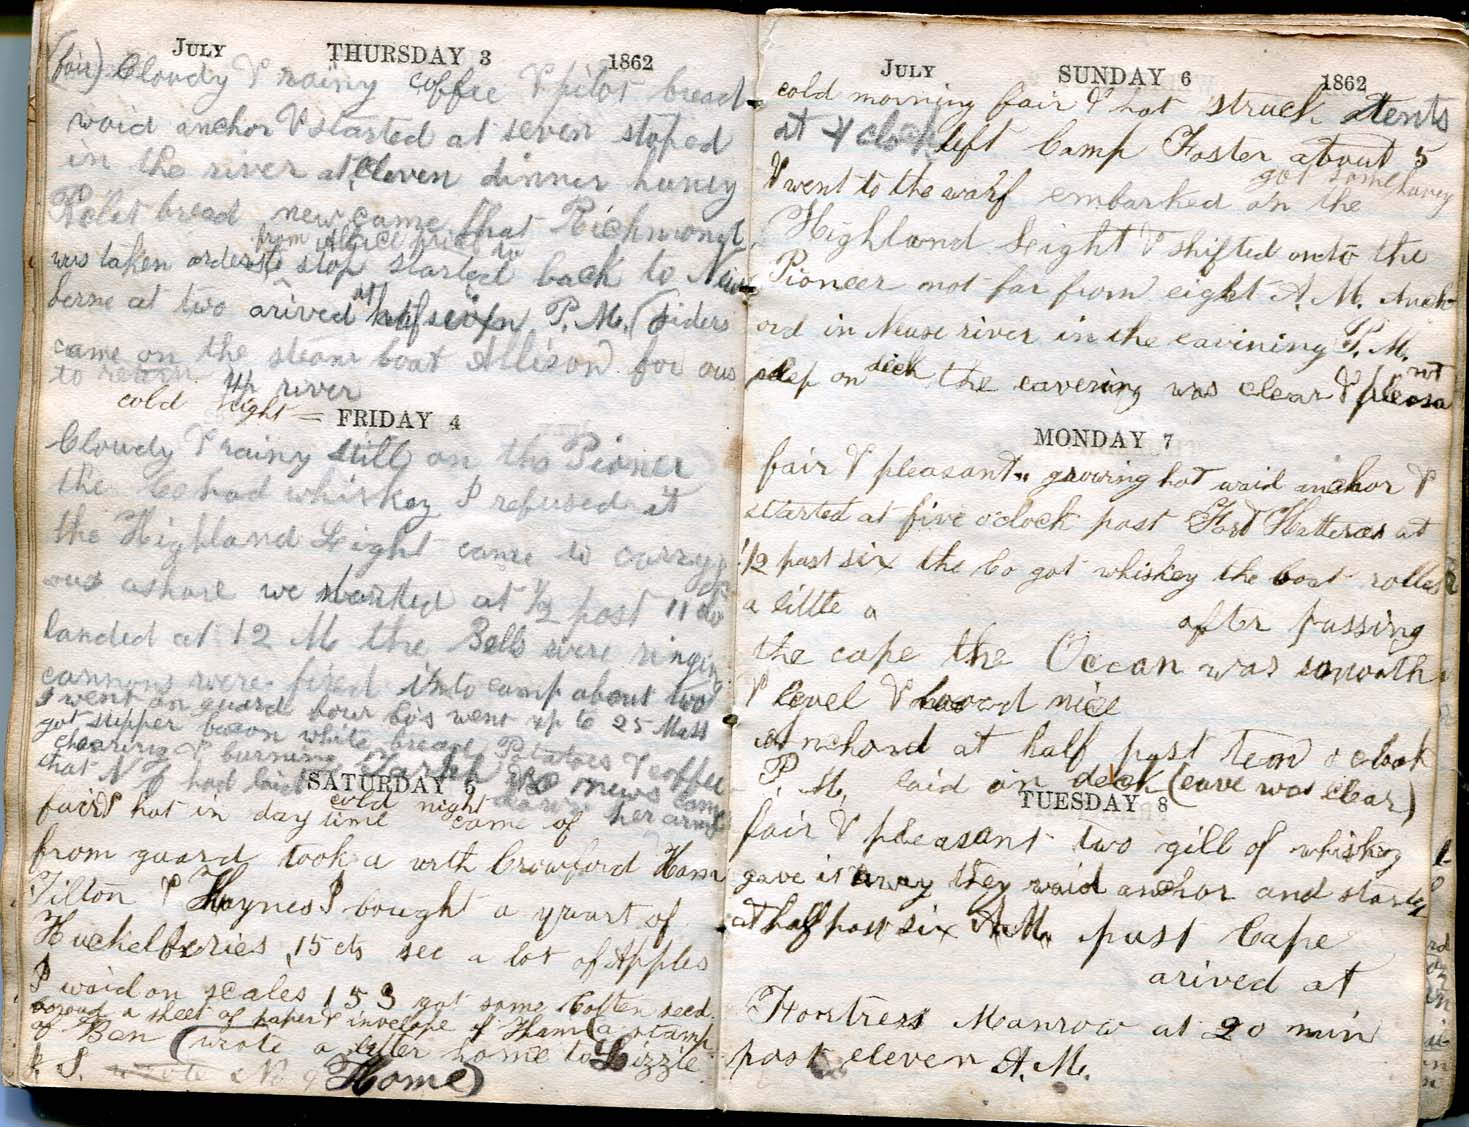 JULY THURSDAY 3 1862
(fair) Cloudy & rainy coffee & pilot bread
waid anchor & started at seven stoped
in the river at eleven dinner huney
Polet bread news came that Richmond
from
was taken orders to stop started back to New
berne at two arived at half seven P.M. (
came on the steam boat Allison for ous
to return up river
cold night = FRIDAY 4
Cloudy & rainy still on the Pioner
the Co had whiskey I refused it
the Highland Light came to carry
ous ashore we started at 1/2 past 11
landed at 12 M the Bells were ringing
cannons were fired into camp about two
I went on guard hour Co's went up to 25 Mass
got supper bacon white bread Potatoes & coffee
chearing & burning news came
that N C had laid down her arms
SATURDAY 5
fair & hot in day time cold night came of
from guard took a with Crowford Ham
Tilton & Haynes I bought a quart of
Huckelberies 15 cts see a lot of Apples
I waid on scales 153 got some Cotten seed
a sheet of paper & invelope of Ham (a stamp
of Ben (wrote a letter home to Lizzie
S. wrote No 9 Home)
JULY SUNDAY 6 1862
cold morning fair & hot struck tents
at 4 clock left Camp Foster about 5
got some huney
& went to the warf embarked on the
Highland Light & shifted onto the
Pioneer not far from eight A.M. Anch-
ord in Neuse river in the eavining P.M.
slep on deck the eavening was clear & pleasa
not
MONDAY 7
fair & pleasant growing hot waid anchor &
started at five o'clock past Fort Hatteras at
1/2 past six the Co got whiskey the boat rolled
a little a after passing
the cape the Ocean was smooth
& level & nice
anchord at half past ten o clock
P. M. laid on deck (eave was clear)
TUESDAY 8
fair & pleasant two gill of whiskey
gave it away they waid anchor and started
at half past six A.M. past Cape
arived at
Fortress Manrow at 20 min
past eleven A.M.